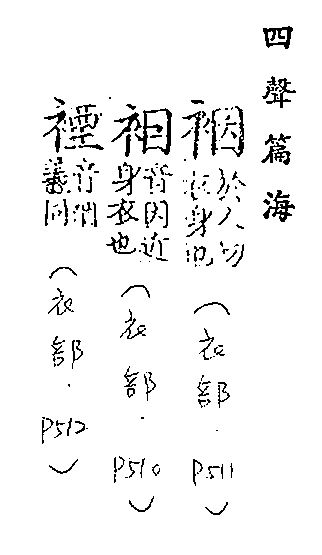 四聲篇海
裀 於人切
衣身也
（衣部．P511）
音因近
身衣也
（衣部．P510）
音
義同
（衣部．P512）